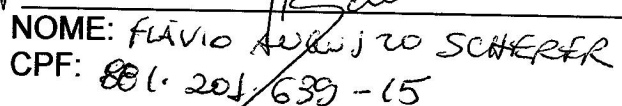 NOME: FLÁVIO AUGUSTO SCHERER
CPF: 881.201.639-15